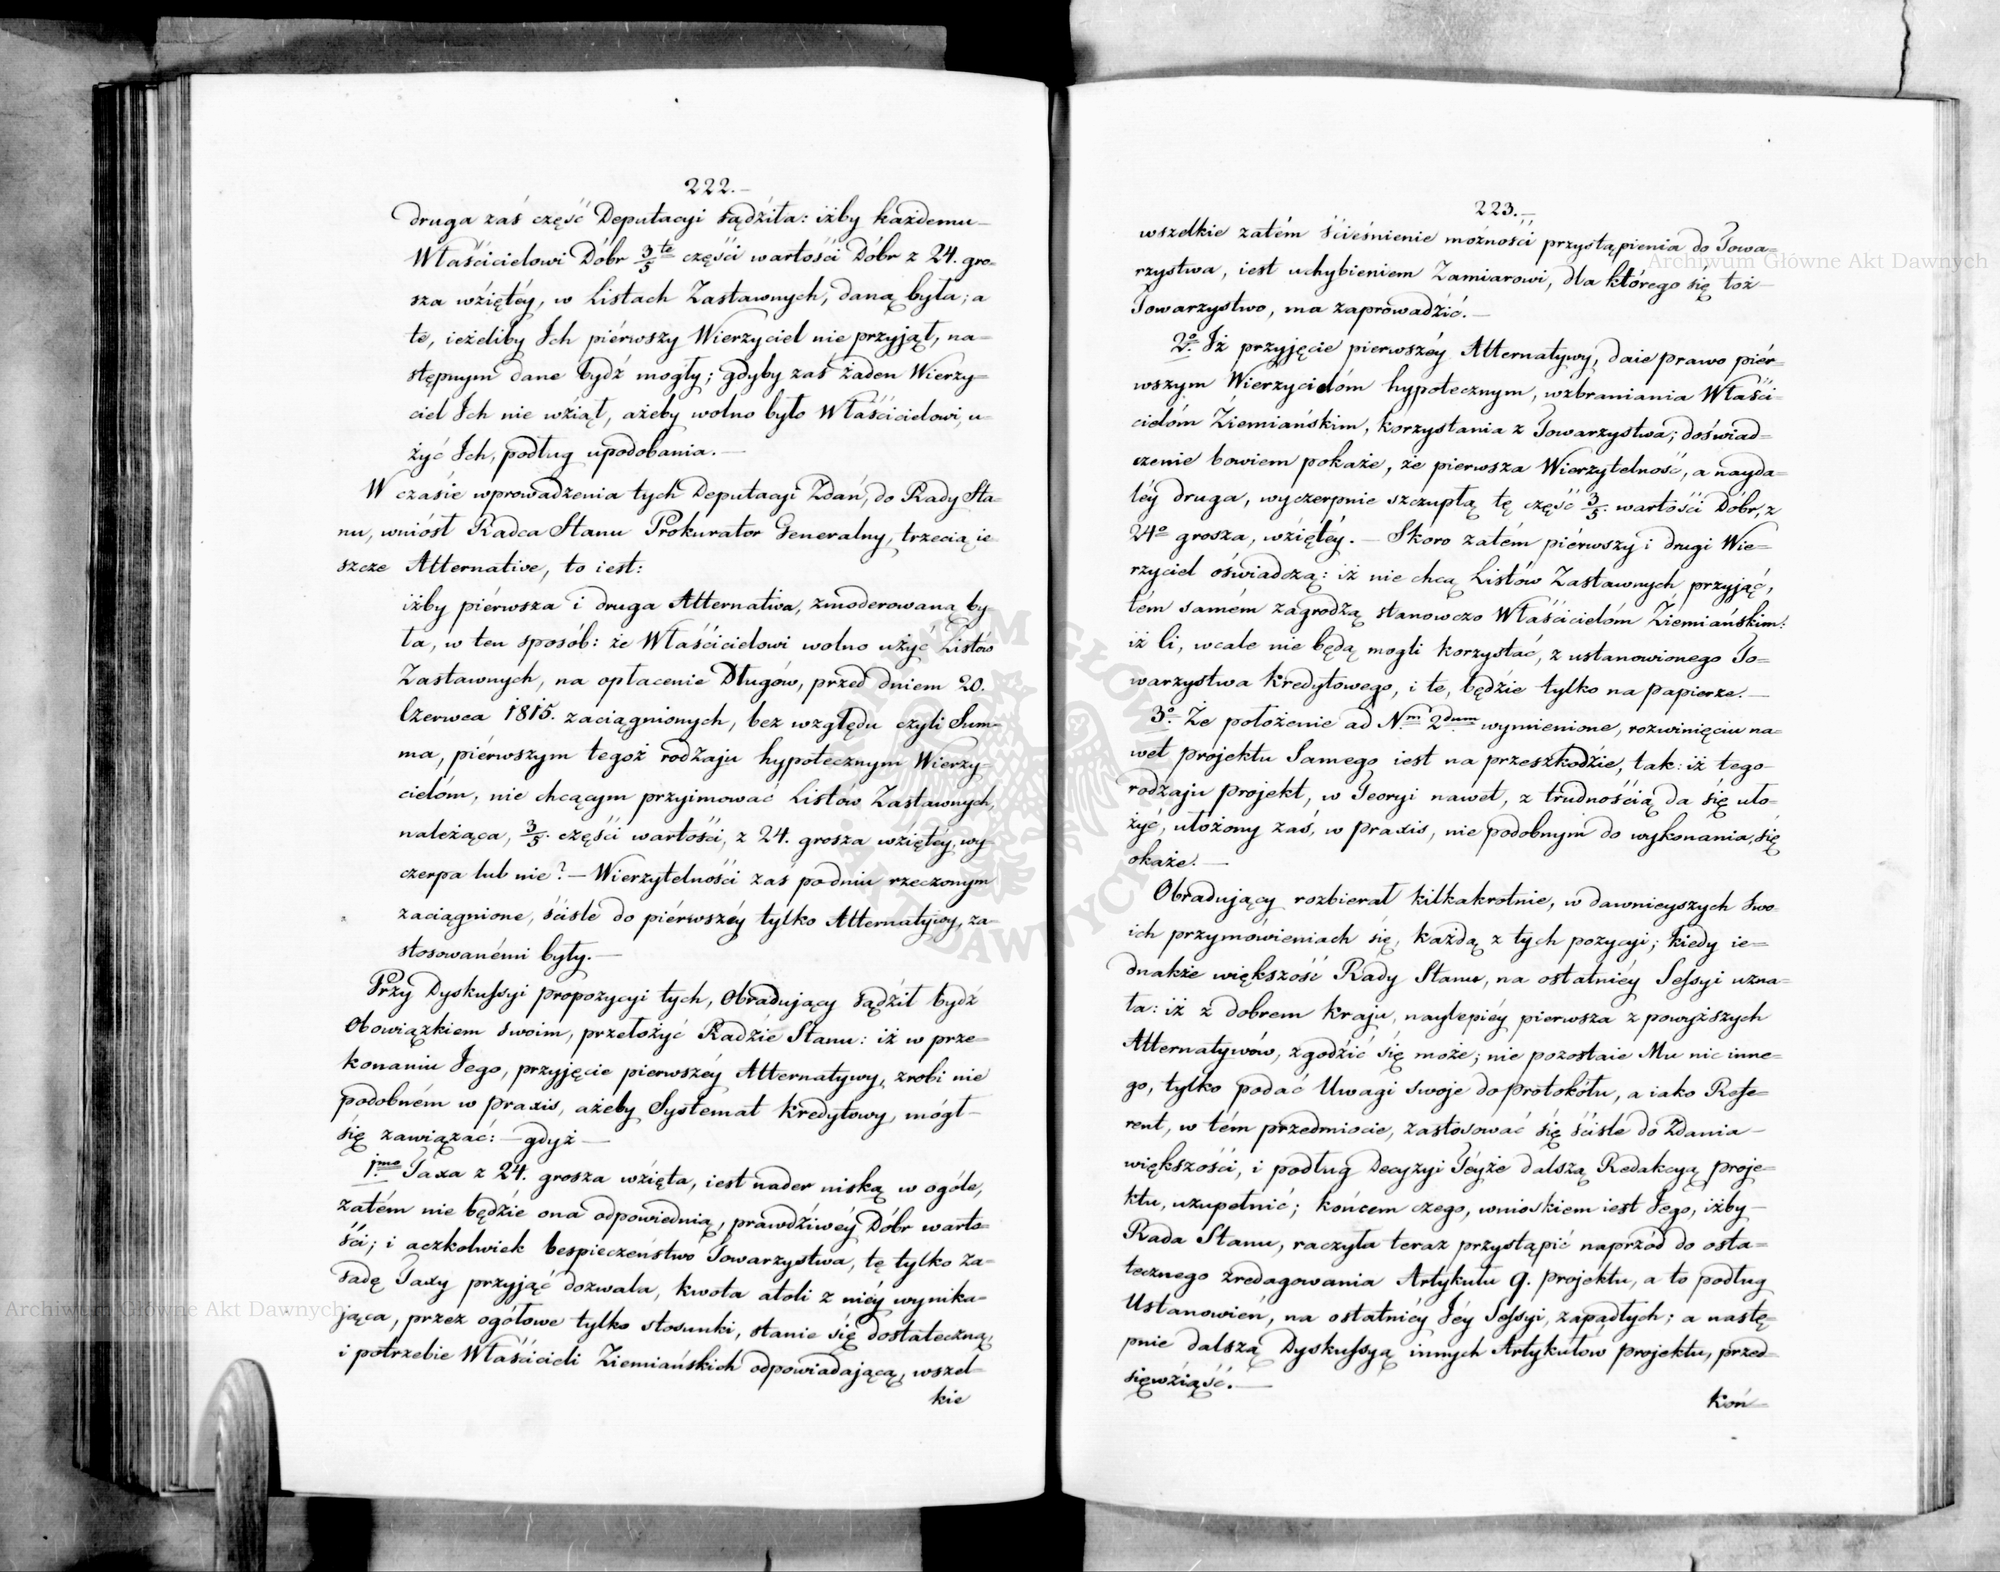 222.—
druga zaś część Deputacyi sądźiła: iżby każdemu—
Właścicielowi Dóbr 3/5 te częśći wartośći Dóbr z 24. gro=
sza wźiętéy, w Listach Zastawnych, daną była; a
te, ieżeliby Ich piérwszy Wierzyciel nie przyjął, na=
stępnym dane bydź mogły; gdyby zaś żaden Wierzy=
ciel Ich nie wźiął, ażeby wolno było Właścicielowi, u=
żyć Ich, podług upodobania.—
W czaśie wprowadzenia tych Deputacyi Zdań, do Rady Sta=
nu, wniósł Radca Stanu Prokurator Generalny, trzecią ie=
szcze Alternative, to iest:
iżby piérwsza i druga Alternativa, zmoderowaną by
ła, w ten sposób: że Właścicielowi wolno użyć Listów
Zastawnych, na opłacenie Długów, przed dniem 20.
Czerwca 1815. zaciągnionych, bez względu czyli Sum=
ma, piérwszym tegoż rodzaju hypotecznym Wierzy=
cielóm, nie chcącym przyimować Listów Zastawnych,
należąca, 3/5. częśći wartośći, z 24. grosza wźiętéy, wy=
czerpa lub nie?— Wierzytelnośći zaś po dniu rzeczonym
zaciągnione, śćisle do piérwszéy tylko Alternatywy, za=
stosowanémi były.—
Przy Dyskussyi propozycyi tych, Obradujący sądźił bydź
Obowiązkiem swoim, przełożyć Radźie Stanu: iż w prze=
konaniu Jego, przyjęcie pierwszéy Alternatywy, zrobi nie
podobném w praxis, ażeby Systémat kredytowy, mógł—
się zawiązać:— gdyż—
1mo Taxa z 24. grosza wźięta, iest nader niską w ogóle,
zatém nie będźie ona odpowiednią, prawdźiwéy Dóbr warto=
śći; i aczkolwiek bespieczeństwo Towarzystwa, tę tylko za=
sadę Taxy przyjąć dozwala, kwota atoli z niéy wynika=
jąca, przez ogółowe tylko stosunki, stanie się dostateczną,
i potrzebie Właśćicieli Ziemiańskich odpowiadającą, wszel=
kie
223.—
wszelkie zatém śćieśnienie możnośći przystąpienia do Towa=
rzystwa, iest uchybieniem Zamiarowi, dla którego się toż—
Towarzystwo, ma zaprowadźić.—
2o. Iż przyjęcie pierwszéy Alternatywy, daie prawo piér=
wszym Wierzycielóm hypotecznym, wzbraniania Właśći=
cielóm Ziemiańskim, korzystania z Towarzystwa; doświad=
czenie bowiem pokaże, że pierwsza Wierzytelność, a nayda=
léy druga, wyczerpnie szczupłą tę część 3/5. wartośći Dóbr, z
24o grosza, wźiętéy.— Skoro zatém piérwszy i drugi Wie=
rzyciel oświadczą: iż nie chcą Listów Zastawnych przyjąć,
tém samém zagrodzą stanowczo Właśćicielóm Ziemiańskim:
iż Ci, wcale nie będą mogli korzystać, z ustanowionego To=
warzystwa kredytowego, i te, będźie tylko na papierze.—
3o. Że położenie ad Nm 2dum wymienione, rozwinięciu na=
wet projektu Samego iest na przeszkodźie, tak: iż tego—
rodzaju projekt, w Teoryi nawet, z trudnośćią da się uło=
żyć, ułożony zaś, w praxis, nie podobnym do wykonania, się
okaże.—
Obradujący rozbierał kilkakrotnie, w dawnieyszych swo=
ich przymówieniach się, każdą z tych pozycyi; kiedy ie=
dnakże większość Rady Stanu, na ostatniéy Sessyi uzna=
ła: iż z dobrem kraju, naylepiéy pierwsza z powyższych
Alternatywów, zgodźić się może; nie pozostaie Mu nic inne=
go, tylko podać Uwagi swoje do protokółu, a iako Refe=
rent, w tém przedmiocie, zastosować się śćisle do Zdania—
większośći, i podług Decyzyi Téyże dalszą Redakcyą proje=
ktu, uzupełnić; końcem czego, wnioskiem iest Jego, iżby—
Rada Stanu, raczyła teraz przystąpić naprzód do osta=
tecznego zredagowania Artykułu 9. projektu, a to podług
Ustanowień, na ostatniéy Jéy Sessyi, zapadłych; a nastę=
pnie dalszą Dyskussyą innych Artykułów projektu, przed=
sięwźiąść.—
Koń=
Archiwum Główne Akt Dawnych
Archiwum Główne Akt Dawnych
ARCHIWUM GŁÓWNE AKT DAWNYCH